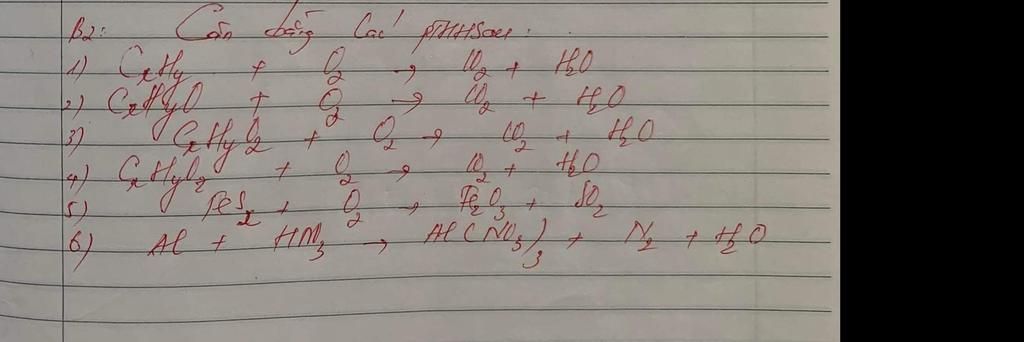 B2: Cân bằng các PTHH sau:
1) CxHy + O2 → CO2 + H2O
2) CxHyO + O2 → CO2 + H2O
3) CxHyO2 + O2 → CO2 + H2O
4) CxHyOz + O2 → CO2 + H2O
5) FeS2 + O2 → Fe2O3 + SO2
6) Al + HNO3 → Al(NO3)3 + N2 + H2O